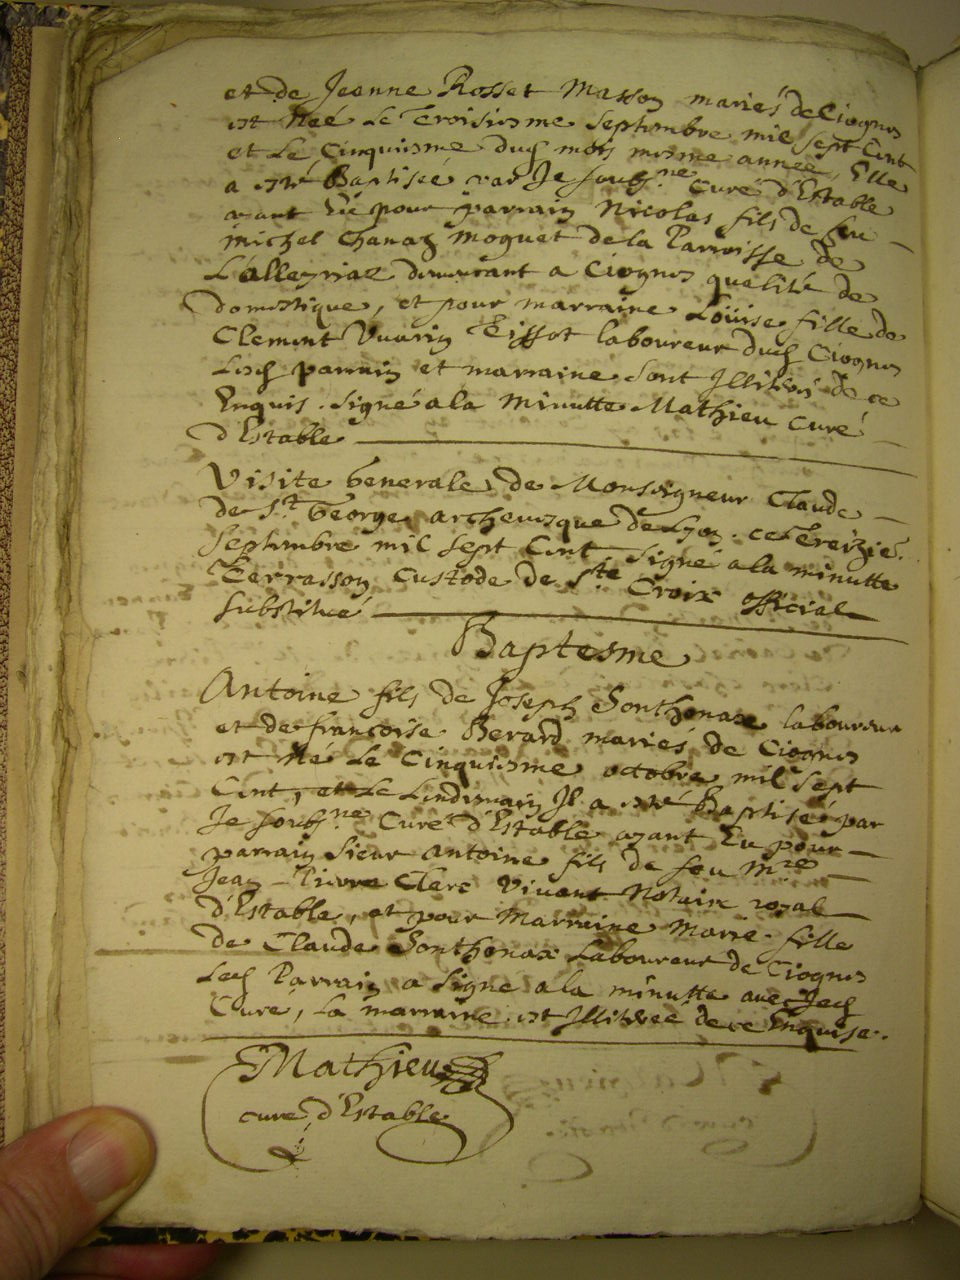 et de Jeanne Rosset Masson mariés de Ciognos
est Née Le Troisiesme Septembre mil sept Cent
et Le Cinquiesme dud mois mesme année, Elle
a esté Baptisée par Je soubs.ne Curé d'Estable
ayant Eu pour parrain Nicolas fils de feu
michel Chanaz Moguet de la Parroisse de
L'alleyriat demeurant a Ciognos qualité de
domestique, et pour marraine Loüise fille de
Clement Vuarin Tissot laboureur dud Ciognos
Lesd parrain et marraine sont Illiterés de ce
Enquis. Signé a la Minutte Mathieu curé
d'Estable
Visite Generale de Monseigneur Claude
de S.t George archevesque de Lyon. ce Treizie.
Septembre mil sept Cent signé a la minutte
Terrasson Custode de Ste Croix official
substitué
Baptesme
Antoine fils de Joseph Sonthonax laboureur
et de françoise Berard mariés de Ciognos
est Né Le Cinquiesme octobre mil sept
Cent, et Le Lendemain Il a esté Baptisé par
Je soubs.ne Curé d'Estable ayant Eu pour
parrain Sieur Antoine fils de feu M.re
Jean - Clerc Vivant Notaire royal
d'Estable, et pour Marraine Marie fille
de Claude Sonthonax Laboureur de Ciognos
Led Parrain a Signe a la minutte avec Led
Curé, La marraine est Illiterée de ce Enquise.
Mathieu
curé d'Estable